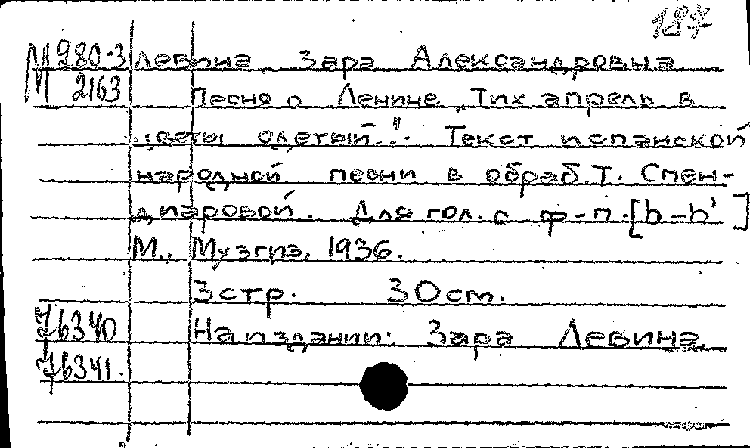 187
М 280-3 Левина Зара Александровна
М 2163 Песня о Ленине „Тих апрель в
цветы одетый..." Текст испанской
народной песни в обраб. Т. Спен-
диаровой. Для гол. с ф-п. [b-b¹]
М., Музгиз, 1936.
3 стр. 30 ст.
Ј6340 На издании: Зара Левина.
Ј6341.